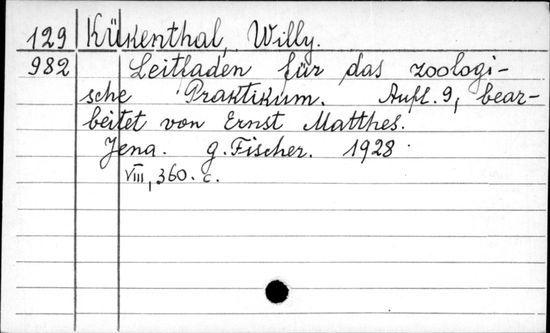 129 Kükenthal, Willy.
982 Leitfaden für das zoologi-
sche Praktikum. Aufl. 9, bear-
beitet von Ernst Matthes.
Jena. G. Fischer. 1928.
VIII, 360. c.